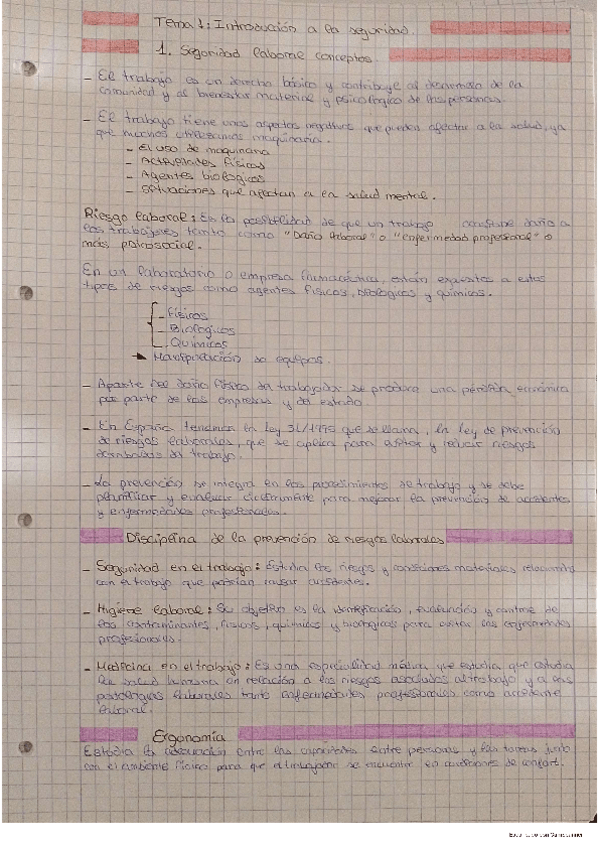 Tema 1: Introducción a la seguridad.
1. Seguridad laboral conceptos.
- El trabajo es un derecho básico y contribuye al desarrollo de la
comunidad y al bienestar material y psicológico de las personas.
- El trabajo tiene unos aspectos negativos que pueden afectar a la salud, ya
que muchos utilizamos maquinaria.
- El uso de maquinaria
- Actividades físicas
- Agentes biológicos
- Situaciones que afectan a la salud mental.
Riesgo laboral: Es la posibilidad de que un trabajo daño a
los trabajores tanto como "Daño laboral" o "enfermedad profesional" o
más, psicosocial.
En un laboratorio o empresa farmacéutica, están expuestos a estos
tipos de riesgos como agentes físicos, biológicos y químicos.
- Físicos
- Biológicos
- Químicos
Manipulación de equipos.
- Aparte del daño físico del trabajador se produce una pérdida económica
por parte de las empresas y del estado
- En España tenemos la ley 31/1995 que se llama, la ley de prevención
de riesgos laborales, que se aplica para evitar y reducir riesgos
derivados del trabajo.
- La prevención se integra en los procedimientos de trabajo y se debe
planificar y evaluar para mejorar la prevención de accidentes
y enfermedades profesionales.
Disciplina de la prevención de riesgos laborales
- Seguridad en el trabajo: Estudia los riesgos y condiciones materiales relacionados
con el trabajo que podrían causar accidentes.
- Higiene laboral: Su objetivo es la identificación, evaluación y control de
los contaminantes, físicos, químicos y biológicos para evitar las enfermedades
profesionales.
- Medicina en el trabajo: Es una especialidad médica que estudia que estudia
la salud humana en relación a los riesgos asociados al trabajo y a las
patologías laborales tanto enfermedades profesionales como accidente
laboral.
Ergonomía
Estudia la adecuación entre las capacidades entre personas y las tareas junto
con el ambiente físico para que el trabajador se encuentre en condiciones de confort.